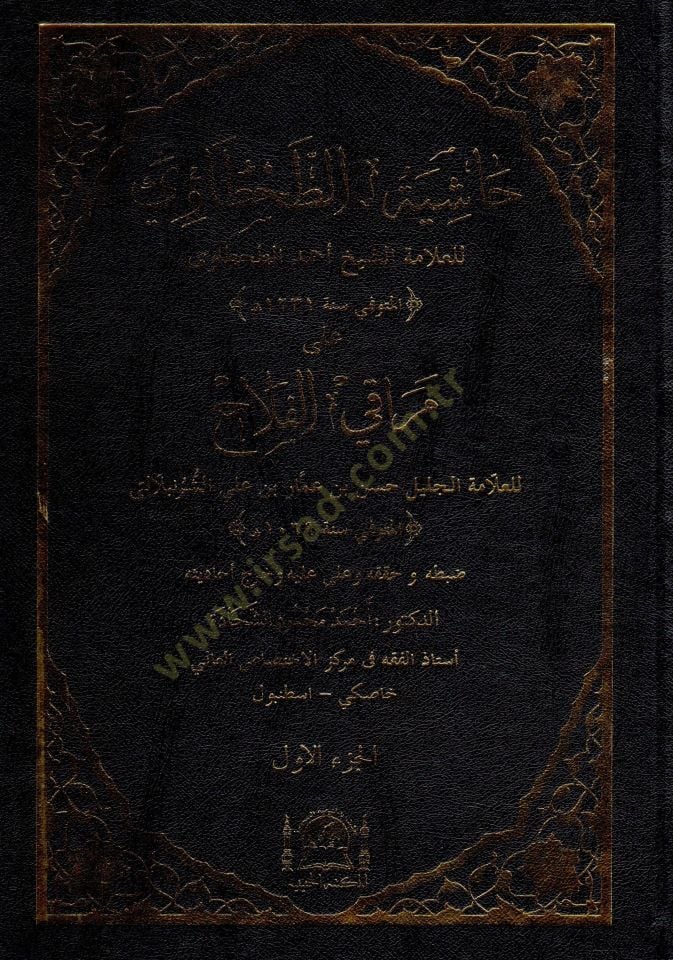 حَاشِيَةُ الطَّحْطَاوِيّ
للعلامة الشيخ أحمد الطحطاوى
المتوفي سنة ١٢٣١هـ
على
مَرَاقِي الفَلَاحْ
للعلّامة الجليل حسن بن عمّار بن علي الشُّرُنبلالي
المتوفي سنة
ضبطه و حققه وعلق عليه وخرج أحاديثه
الدكتور : أَحمَد مَحْمُود الشحادة
أستاذ الفقه فى مركز الاختصاص العالي
خاصكي - اسطنبول
الجزء الاول
المكتبة الحنيفية
www.irsad.com.tr